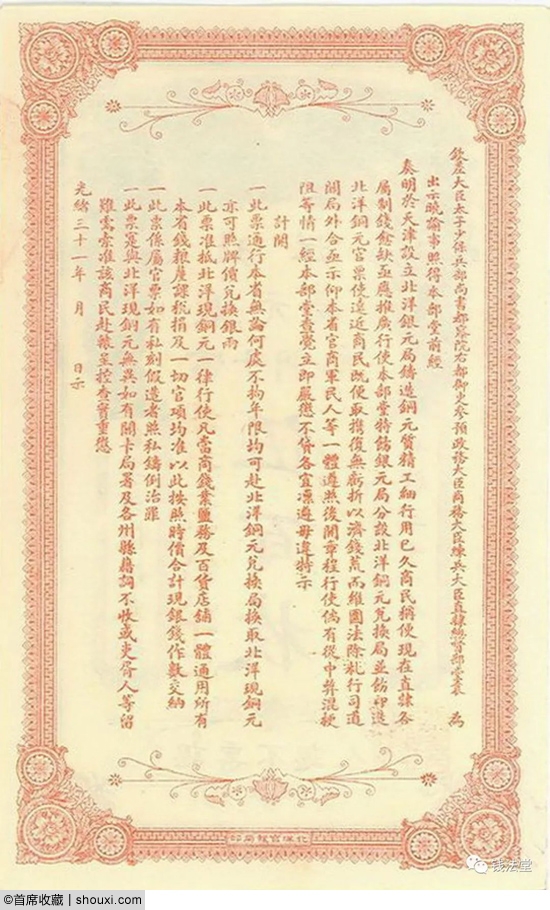 钦差大臣太子少保兵部尚書都察院右都御史参預政務大臣商務大臣練兵大臣直隸總督部堂袁 為
出示曉諭事照得本部堂前經
奏明於天津設立北洋銀元局鑄造銅元質精工細行用已久商民稱便現在直隸各
屬制錢餘缺亟應推廣行使本部堂特飭銀元局分設北洋銅元兌換局並飭印造
北洋銅元官票使遠近商民既便取攜復無虧折以濟錢荒而維圜法除札行司道
關局外合亟示仰本省官商軍民人等一體遵照後開章程行使倘有從中弊混梗
阻等情一經本部堂查覺立即嚴懲不貸各宜凛遵毋違特示
計開
一此票通行本省無論何處不拘年限均可赴北洋銅元兌換局換取北洋現銅元
亦可照牌價兌換銀兩
一此票准抵北洋現銅元一律行使凡當商錢業鹽務及百貨店鋪一體通用所有
本省錢粮釐課税捐及一切官項均准以此按照時價合計現銀錢作數交納
一此票係屬官票如有私刻假造者照私鑄例治罪
一此票是與北洋現銅元無異如有關卡局署及各州縣藉詞不收或吏胥人等留
難需索准該商民赴轅呈控查實重懲
光緒三十一年 月 日示
北洋官報局印
钱法堂
©首席收藏 | shouxi.com